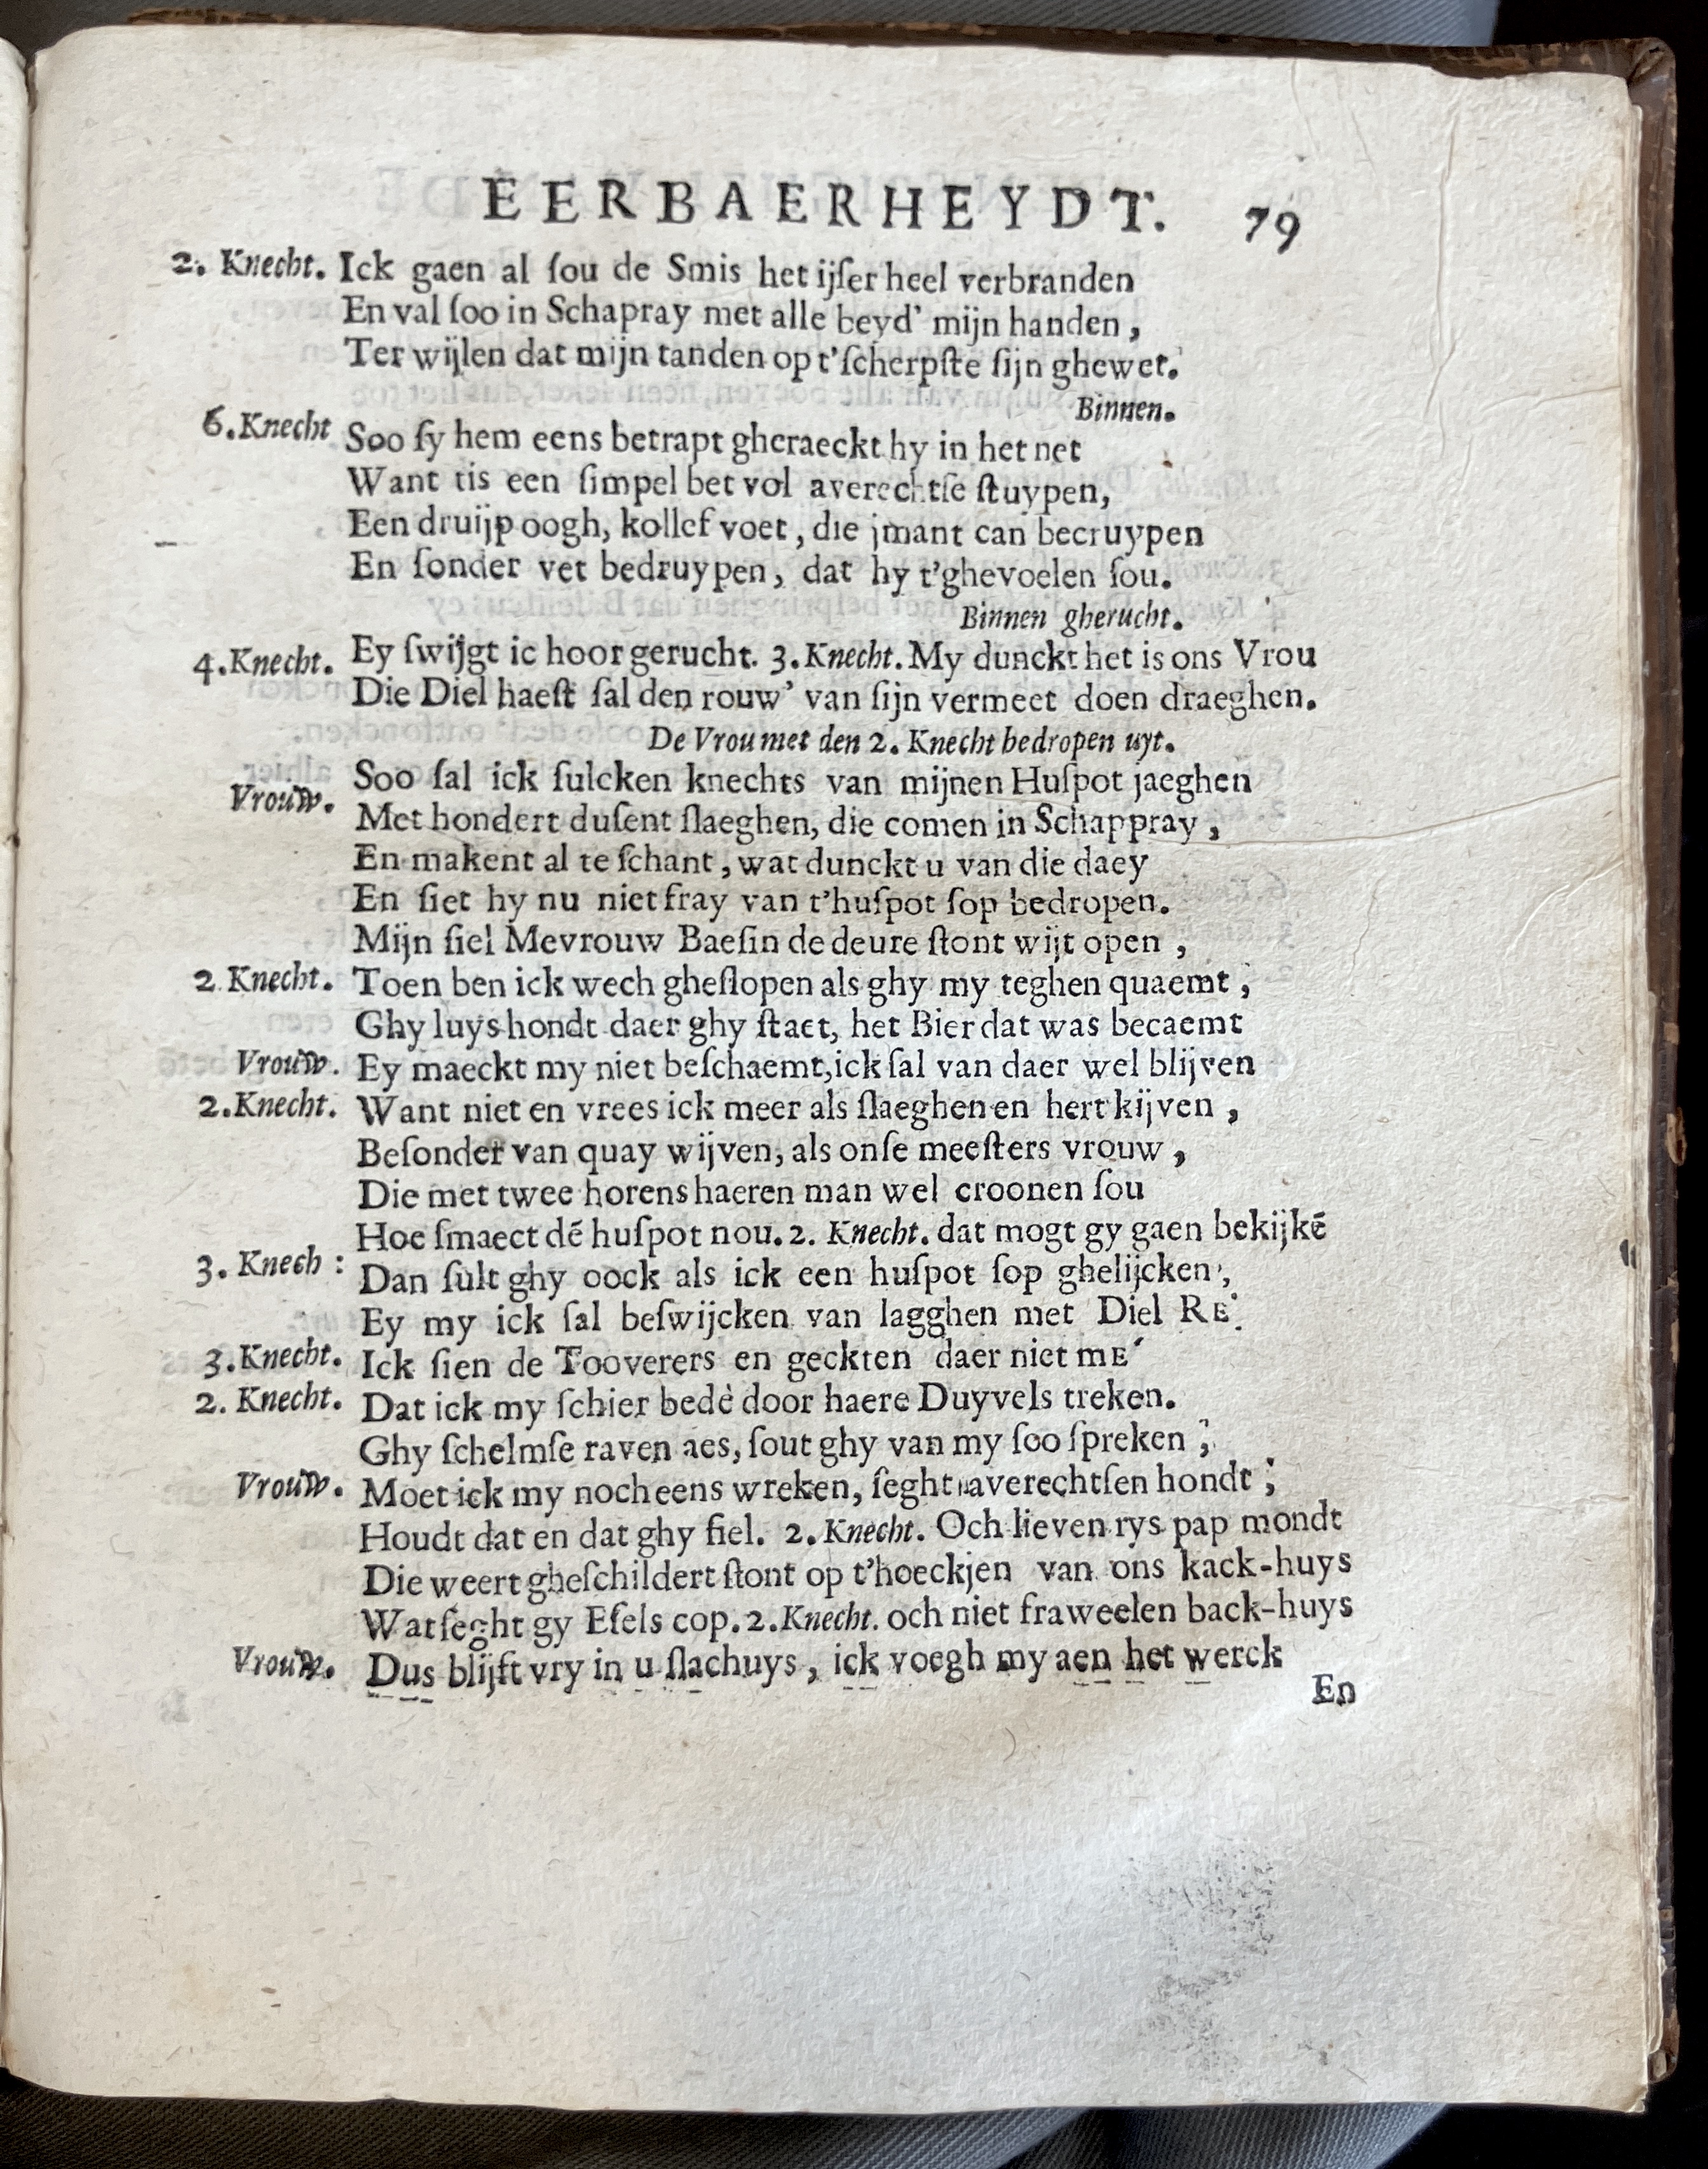 EERBAERHEYDT. 79
2. Knecht. Ick gaen al ſou de Smis het ijſer heel verbranden
En val ſoo in Schapray met alle beyd' mijn handen ,
Ter wijlen dat mijn tanden op t'ſcherpſte ſijn ghewet.
Binnen.
6.Knecht Soo ſy hem eens betrapt gheraeckt hy in het net
Want tis een ſimpel bet vol averechtſe ſtuypen,
Een druijp oogh, kollef voet , die jmant can becruypen
En ſonder vet bedruypen, dat hy t'ghevoelen ſou.
Binnen gherucht.
4.Knecht. Ey ſwijgt ic hoor gerucht. 3.Knecht. My dunckt het is ons Vrou
Die Diel haeſt ſal den rouw' van ſijn vermeet doen draeghen.
De Vrou met den 2. Knecht bedropen uyt.
Vrouw. Soo ſal ick ſulcken knechts van mijnen Huſpot jaeghen
Met hondert duſent ſlaeghen, die comen in Schappray ,
En makent al te ſchant , wat dunckt u van die daey
En ſiet hy nu niet fray van t'huſpot ſop bedropen.
Mijn ſiel Mevrouw Baeſin de deure ſtont wijt open ,
2 Knecht. Toen ben ick wech gheſlopen als ghy my teghen quaemt ,
Ghy luys hondt daer ghy ſtaet, het Bier dat was becaemt
Vrouw. Ey maeckt my niet beſchaemt,ick ſal van daer wel blijven
2.Knecht. Want niet en vrees ick meer als ſlaeghen en hert kijven ,
Beſonder van quay wijven, als onſe meeſters vrouw ,
Die met twee horens haeren man wel croonen ſou
Hoe ſmaect dē huſpot nou. 2. Knecht. dat mogt gy gaen bekijkē
3. Knech : Dan ſult ghy oock als ick een huſpot ſop ghelijcken ,
Ey my ick ſal beſwijcken van lagghen met Diel RE'.
3.Knecht. Ick ſien de Tooverers en geckten daer niet mE'
2. Knecht. Dat ick my ſchier bedè door haere Duyvels treken.
Ghy ſchelmſe raven aes, ſout ghy van my ſoo ſpreken ;
Vrouw. Moet ick my noch eens wreken, ſeght averechtſen hondt ;
Houdt dat en dat ghy fiel. 2. Knecht. Och lieven rys pap mondt
Die weert gheſchildert ſtont op t'hoeckjen van ons kack-huys
Wat ſeght gy Eſels cop. 2.Knecht. och niet fraweelen back-huys
Vrouw. Dus blijft vry in u ſlachuys , ick voegh my aen het werck
En